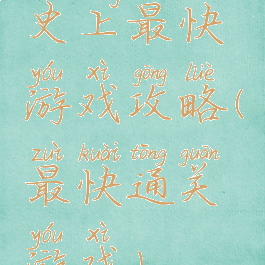 史上最快
yóu xì gōng lüè
游戏攻略(
zuì kuài tōng guān
最快通关
yóu xì
游戏)